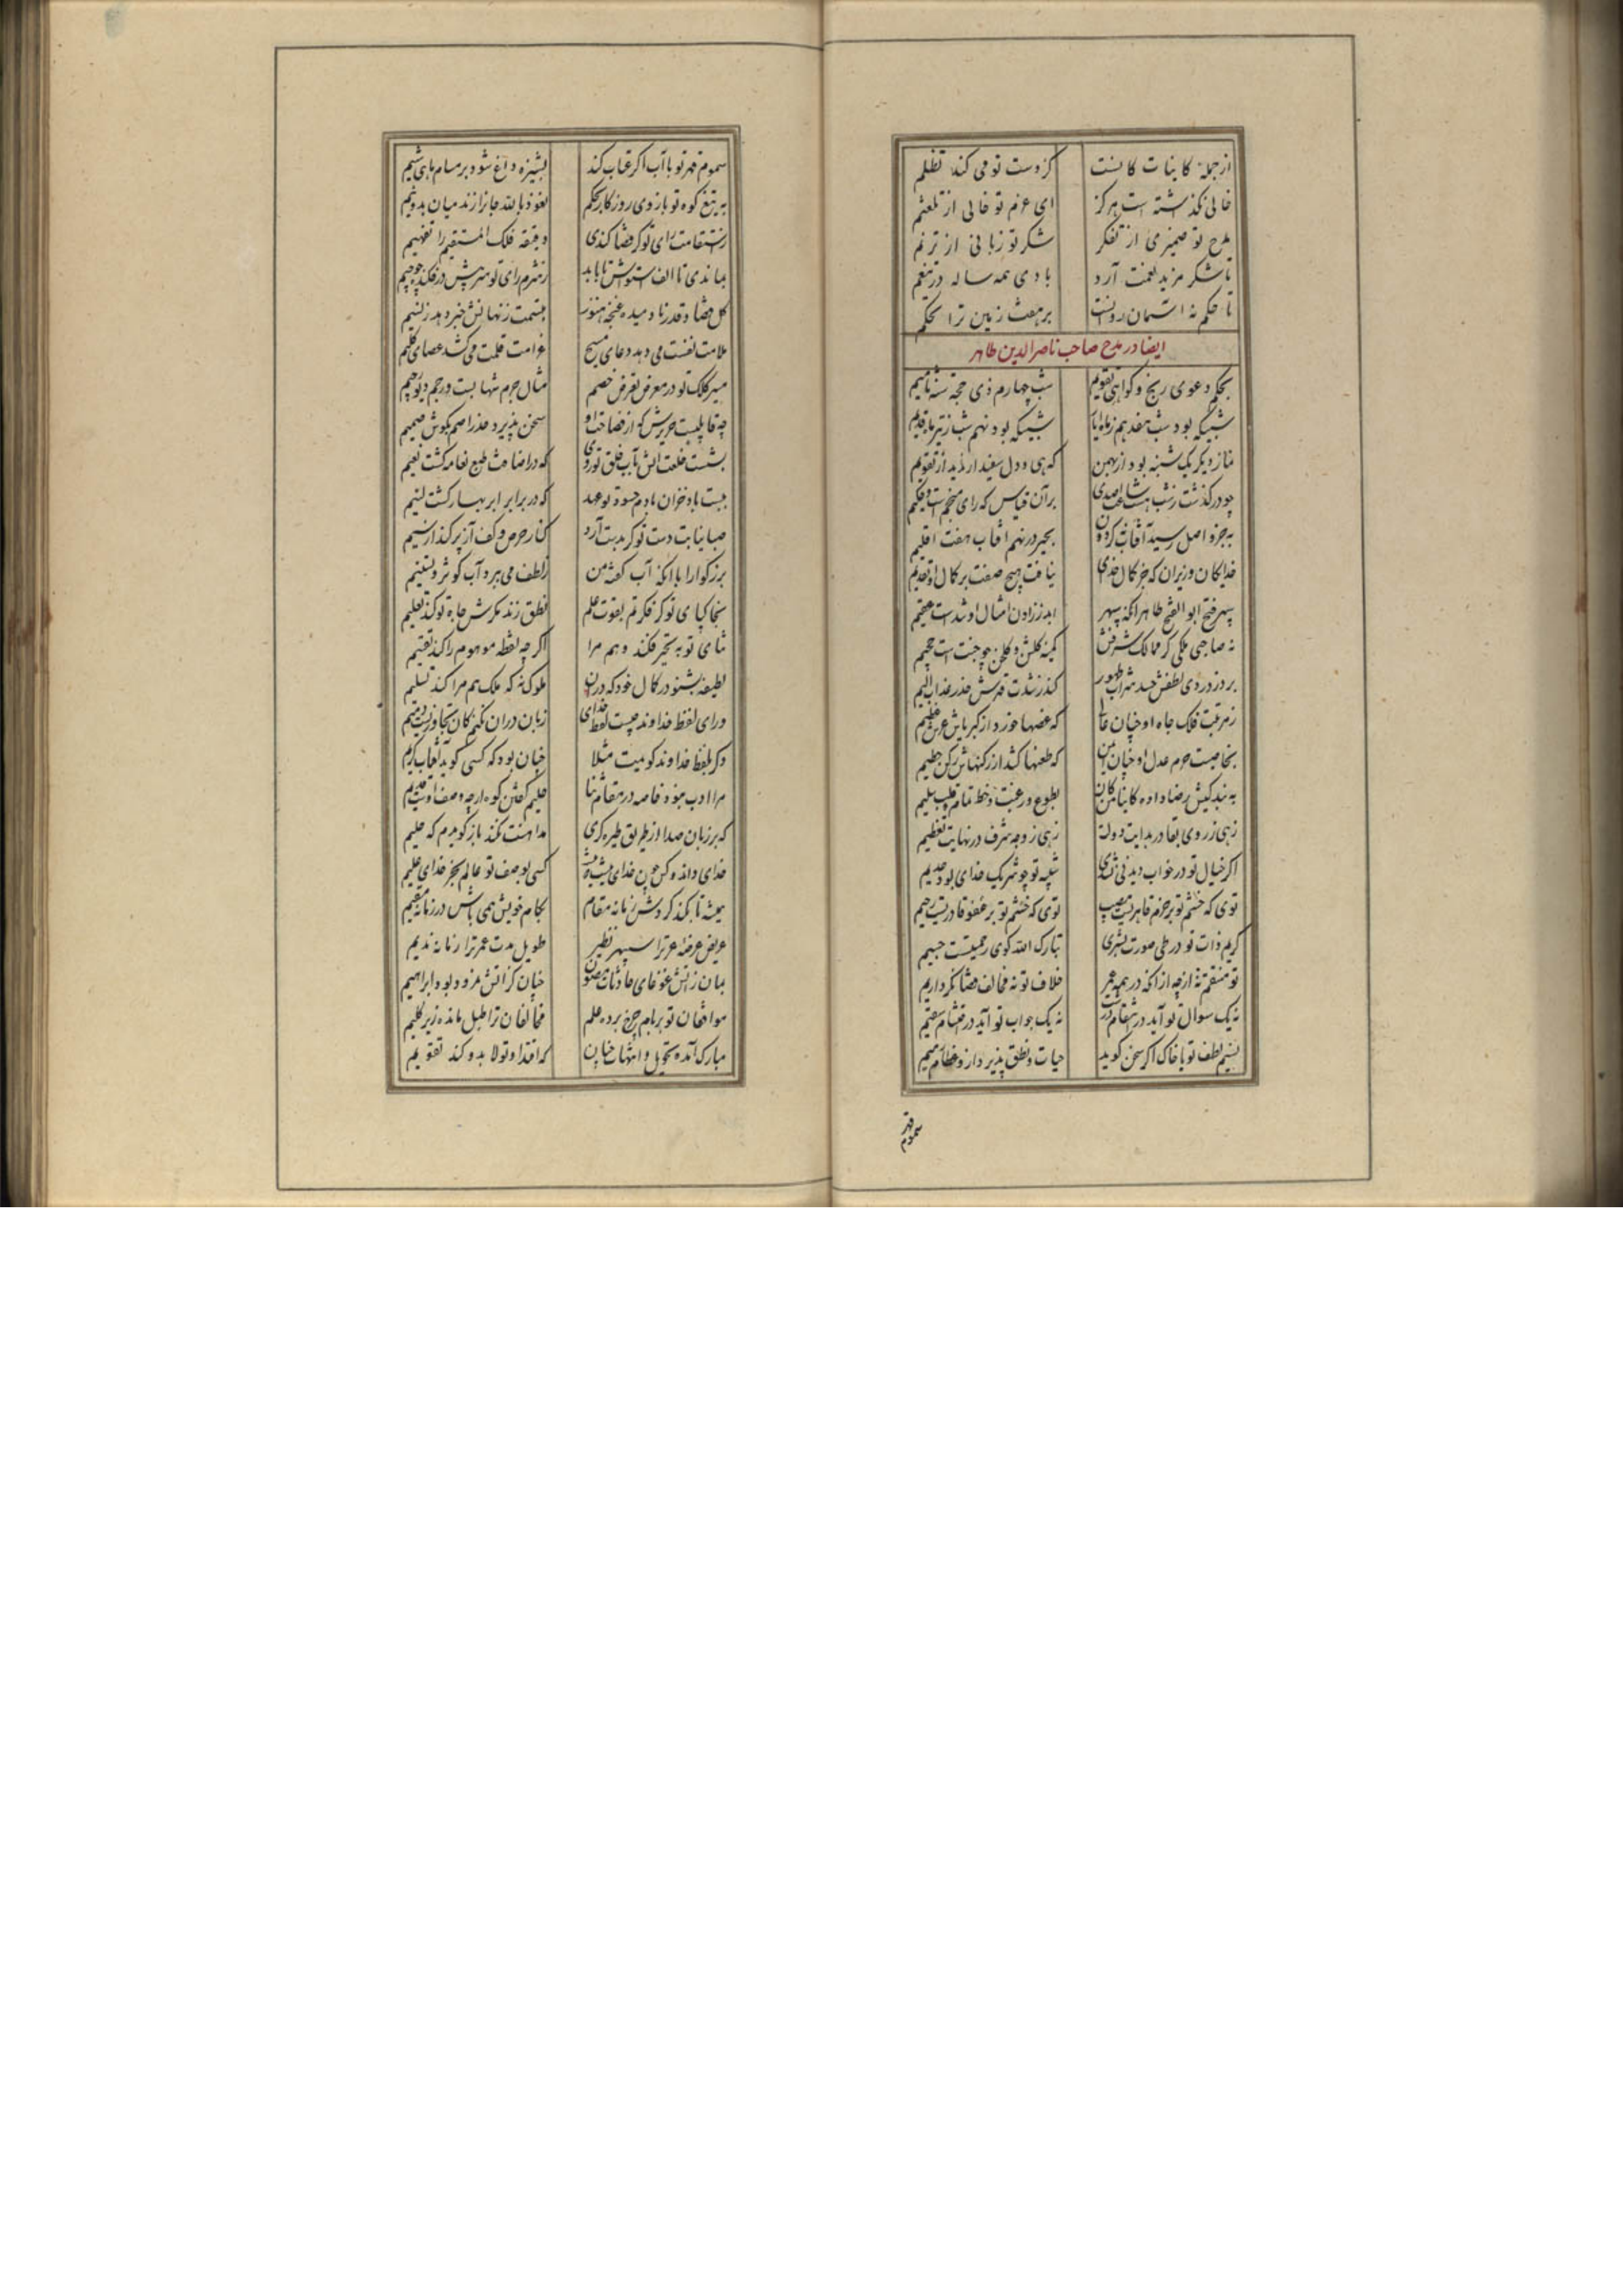 از جمله کاینات کانست کز دست تو می کند تظلم
خالی نگذاشته است هرگز ای عزم تو خالی از تلعثم
مدح تو ضمیری از تفکر شکر تو زبانی از ترنم
تا شکر مزید نعمت آرد بادی همه ساله در تنعم
تا حکم نه آسمان روانست بر هفت زمین ترا تحکم
ایضا در مدح صاحب ناصرالدین طاهر
بحکم دعوی زیج و گواهی تقویم شب چهارم ذی حجه سنه ثامیم
شبیکه بود شب هفدهم زماه ایار شبیکه بود نهم شب ز تیر ماه قدیم
نماز دیگر یکشنبه بود از بهمن که بی و دال سفندارمذ بد از تقویم
چو درگذشت ز شب هشت ساعت رصدی بر آن قیاس که رای منجم است و حکیم
بجزو اصل رسید آفتاب گردون بخیر در نهم آفتاب هفت اقلیم
خدایگان وزیران که جز کمال خدای نیافت هیچ صفت بر کمال او تقدیم
سپهر فتح ابوالفتح طاهر آنکه سپهر ابد ززادن امثال او شدست عقیم
نه صاحبی ملکی کز ممالک شرفش کمینه گلشن و گلخن چو جنت است و جحیم
برد ز دردی لطفش حسد شراب طهور کند ز شدت قهرش حذر عذاب الیم
ز مرتبت فلک جاه او چنان عالی که غصها خورد از کبریاش عرش عظیم
بخاصیت حرم عدل او چنان ایمن که طعنها کشد از رکنهاش رکن حطیم
به بندگیش رضا داده کاینا من کان بطوع و رغبت و خط تمام و قلب سلیم
زهی ز روی بقا در بدایت دولت زهی ز وجه شرف در نهایت تعظیم
اگر خیال تو در خواب دیدنی نشدی شبیه تو چو شریک خدای بود عدیم
توی که خشم تو بر جرم قاهریست مصیب توی که خشم تو بر عفو قادریست رحیم
کریم ذات تو در طی صورت بشری تبارک الله گوی رحمتیست جسیم
تو منتقم نهٔ ار چه از آنکه در همه عمر خلاف تو نه مخالف قضا نکرد اریم
نه یک سوال تو آید در انتقام درست نه یک جواب تو آید در انتقام سقیم
نسیم لطف تو با خاک اگر سخن گوید حیات و نطق پذیرد ازو عظام رمیم
سموم قهر
سموم قهر تو با آب اگر عتاب کند پشیزه داغ شود بر مسام ماهی شیم
به تیغ کوه تو بازوی روزگار بحکم نعوذ بالله جانرا زند میان بدو نیم
ز استقامت رای تو گر قضا کندی دقیقه فلک المستقیم را تفهیم
بماندی تا الف استواش تا بابد ز شرم رای تو سر پیش در فکنده چو جیم
گل قضا و قدر نا دمیده غنچه هنوز بتسمت زنهانش خبر دهد ز نسیم
علامت نفست می دهد دعای مسیح غرامت قلمت می کشد عصای کلیم
مسیر کلک تو در معرض تعرض خصم مثال جرم شهابست و رجم دیو رجیم
چه قابلیست صریرش که از فصاحت او سخن پذیرد جذر اصم بگوش صمیم
بشست خلعت آتش بآب خلق تو روی که در اضافت طبع نعامه گشت نعیم
ببست باد خزان بادم حسود تو عهد که در برابر ابر بهار گشت لئیم
صبا نیابت دست تو گر بدست آرد کنار حرص و کف آز پر کند از سیم
بزرگوارا با آنکه آب گفته من ز لطف می برد آب کوثر و تسنیم
بخاکپای تو گر فکرتم بقوت علم نطق زند مگرش جاه تو کند تعلیم
ثنای تو به تحیر فکند وهم مرا اگر چه نقطه موهوم را کند تقسیم
لطیفه بشنو در کمال خود که در آن ملوک نه که ملک هم مرا کند تسلیم
ورای لفظ خداوند چیست لفظ خدای زبان در آن نکنم کان تجاوزیست ذمیم
و گر بلفظ خداوند گویمت مثلا چنان بود که کسی گوید آفتاب کریم
مرا ادب نبود خاصه در مقام ثنا حلیم گفتن کوه ار چه وصف اوست قدیم
که بر زبان صدا از طریق طیره گری مداهنت نکند باز گویدم که حلیم
خدای داند و کس چون خدای نیست کسی بوصف تو عالم بجز خدای علیم
همیشه تا نکند گردش زمانه مقام بکام خویش همی باش در زمانه مقیم
عریض عرصه عز ترا سپهر نظیر طویل مدت عمر ترا زمانه ندیم
بمان ز آتش غوغای حادثات مصون چنان کز آتش نمرود بود ابراهیم
موافقان تو بر بام چرخ برده علم مخالفان ترا طبل مانده زیر گلیم
مبارک آمده تحویل و انتهات چنان که اقتدا و تولا بدو کند تقویم